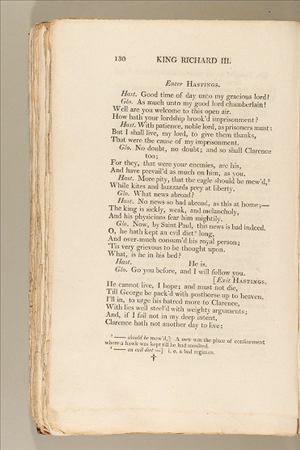 130 KING RICHARD III.
Enter HASTINGS.
Hast. Good time of day unto my gracious lord!
Glo. As much unto my good lord chamberlain!
Well are you welcome to this open air.
How hath your lordship brook'd imprisonment?
Hast. With patience, noble lord, as prisoners must:
But I shall live, my lord, to give them thanks,
That were the cause of my imprisonment.
Glo. No doubt, no doubt; and so shall Clarence
too;
For they, that were your enemies, are his,
And have prevail'd as much on him, as you.
Hast. More pity, that the eagle should be mew'd,
While kites and buzzards prey at liberty.
Glo. What news abroad?
Hast. No news so bad abroad, as this at home;—
The king is sickly, weak, and melancholy,
And his physicians fear him mightily.
Glo. Now, by Saint Paul, this news is bad indeed.
O, he hath kept an evil diet long,
And over-much consum'd his royal person;
'Tis very grievous to be thought upon.
What, is he in his bed?
Hast. He is.
Glo. Go you before, and I will follow you.
[Exit HASTINGS.
He cannot live, I hope; and must not die,
Till George be pack'd with posthorse up to heaven.
I'll in, to urge his hatred more to Clarence,
With lies well steel'd with weighty arguments;
And, if I fail not in my deep intent,
Clarence hath not another day to live:
—— should be mew'd,] A mew was the place of confinement
where a hawk was kept till he had moulted.
—— an evil diet —] i. e. a bad regimen.